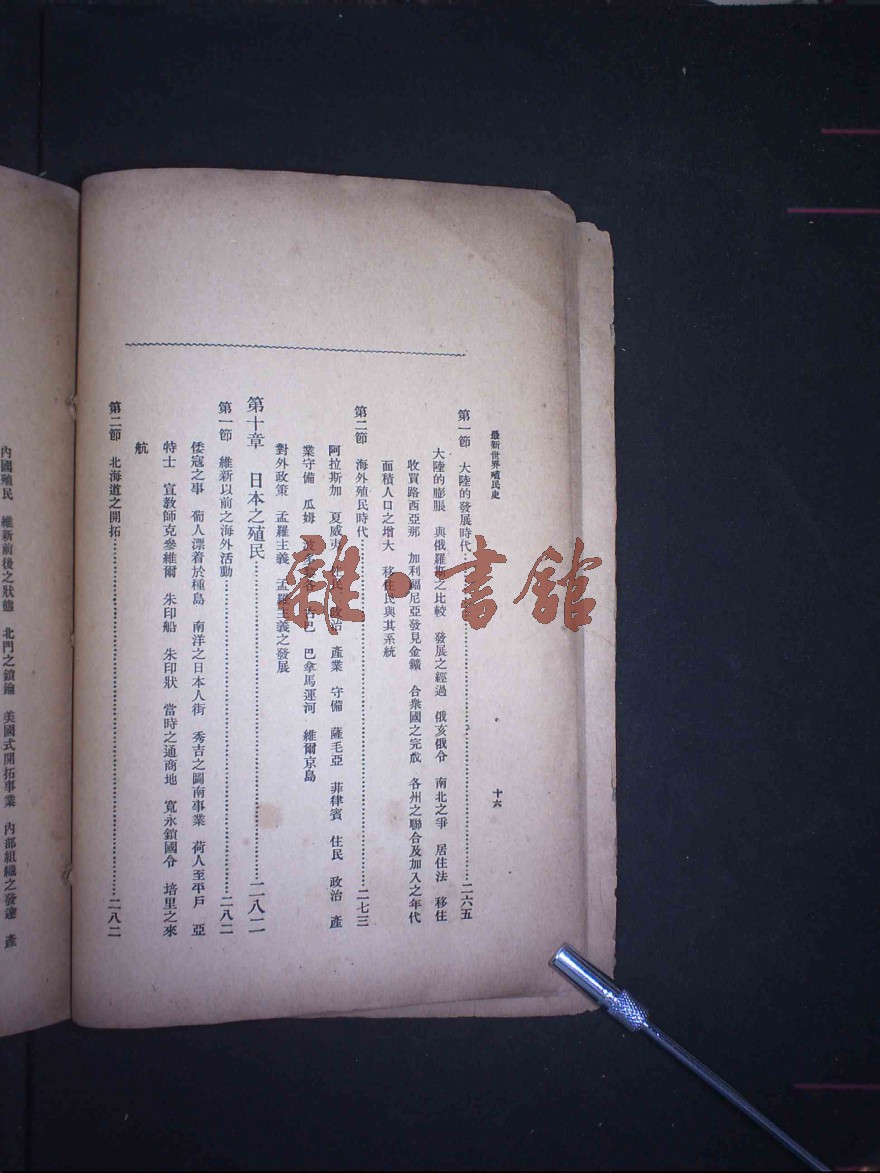 最新世界殖民史
十六
第一節 大陸的發展時代 二六五
大陸的膨脹 與俄羅斯之比較 發展之經過 俄亥俄令 南北之爭 居住法 移住
收買路西亞那 加利福尼亞發見金鑛 合衆國之完成 各州之聯合及加入之年代
面積人口之增大 移住民與其系統
第二節 海外殖民時代 二七三
阿拉斯加 夏威夷 住民 政治 產業 守備 薩毛亞 菲律賓 住民 政治 產
業守備 瓜姆 古巴 巴拿馬運河 維爾京島
對外政策 孟羅主義 孟羅主義之發展
第十章 日本之殖民 二八二
第一節 維新以前之海外活動 二八二
倭寇之事 葡人漂着於種島 南洋之日本人街 秀吉之圖南事業 荷人至平戶 亞
特士 宣教師克參維爾 朱印船 朱印狀 當時之通商地 寬永鎖國令 培里之來
航
第二節 北海道之開拓 二八二
內國殖民 維新前後之狀態 北門之鎖鑰 美國式開拓事業 內部組織之發達 產
雜·書館